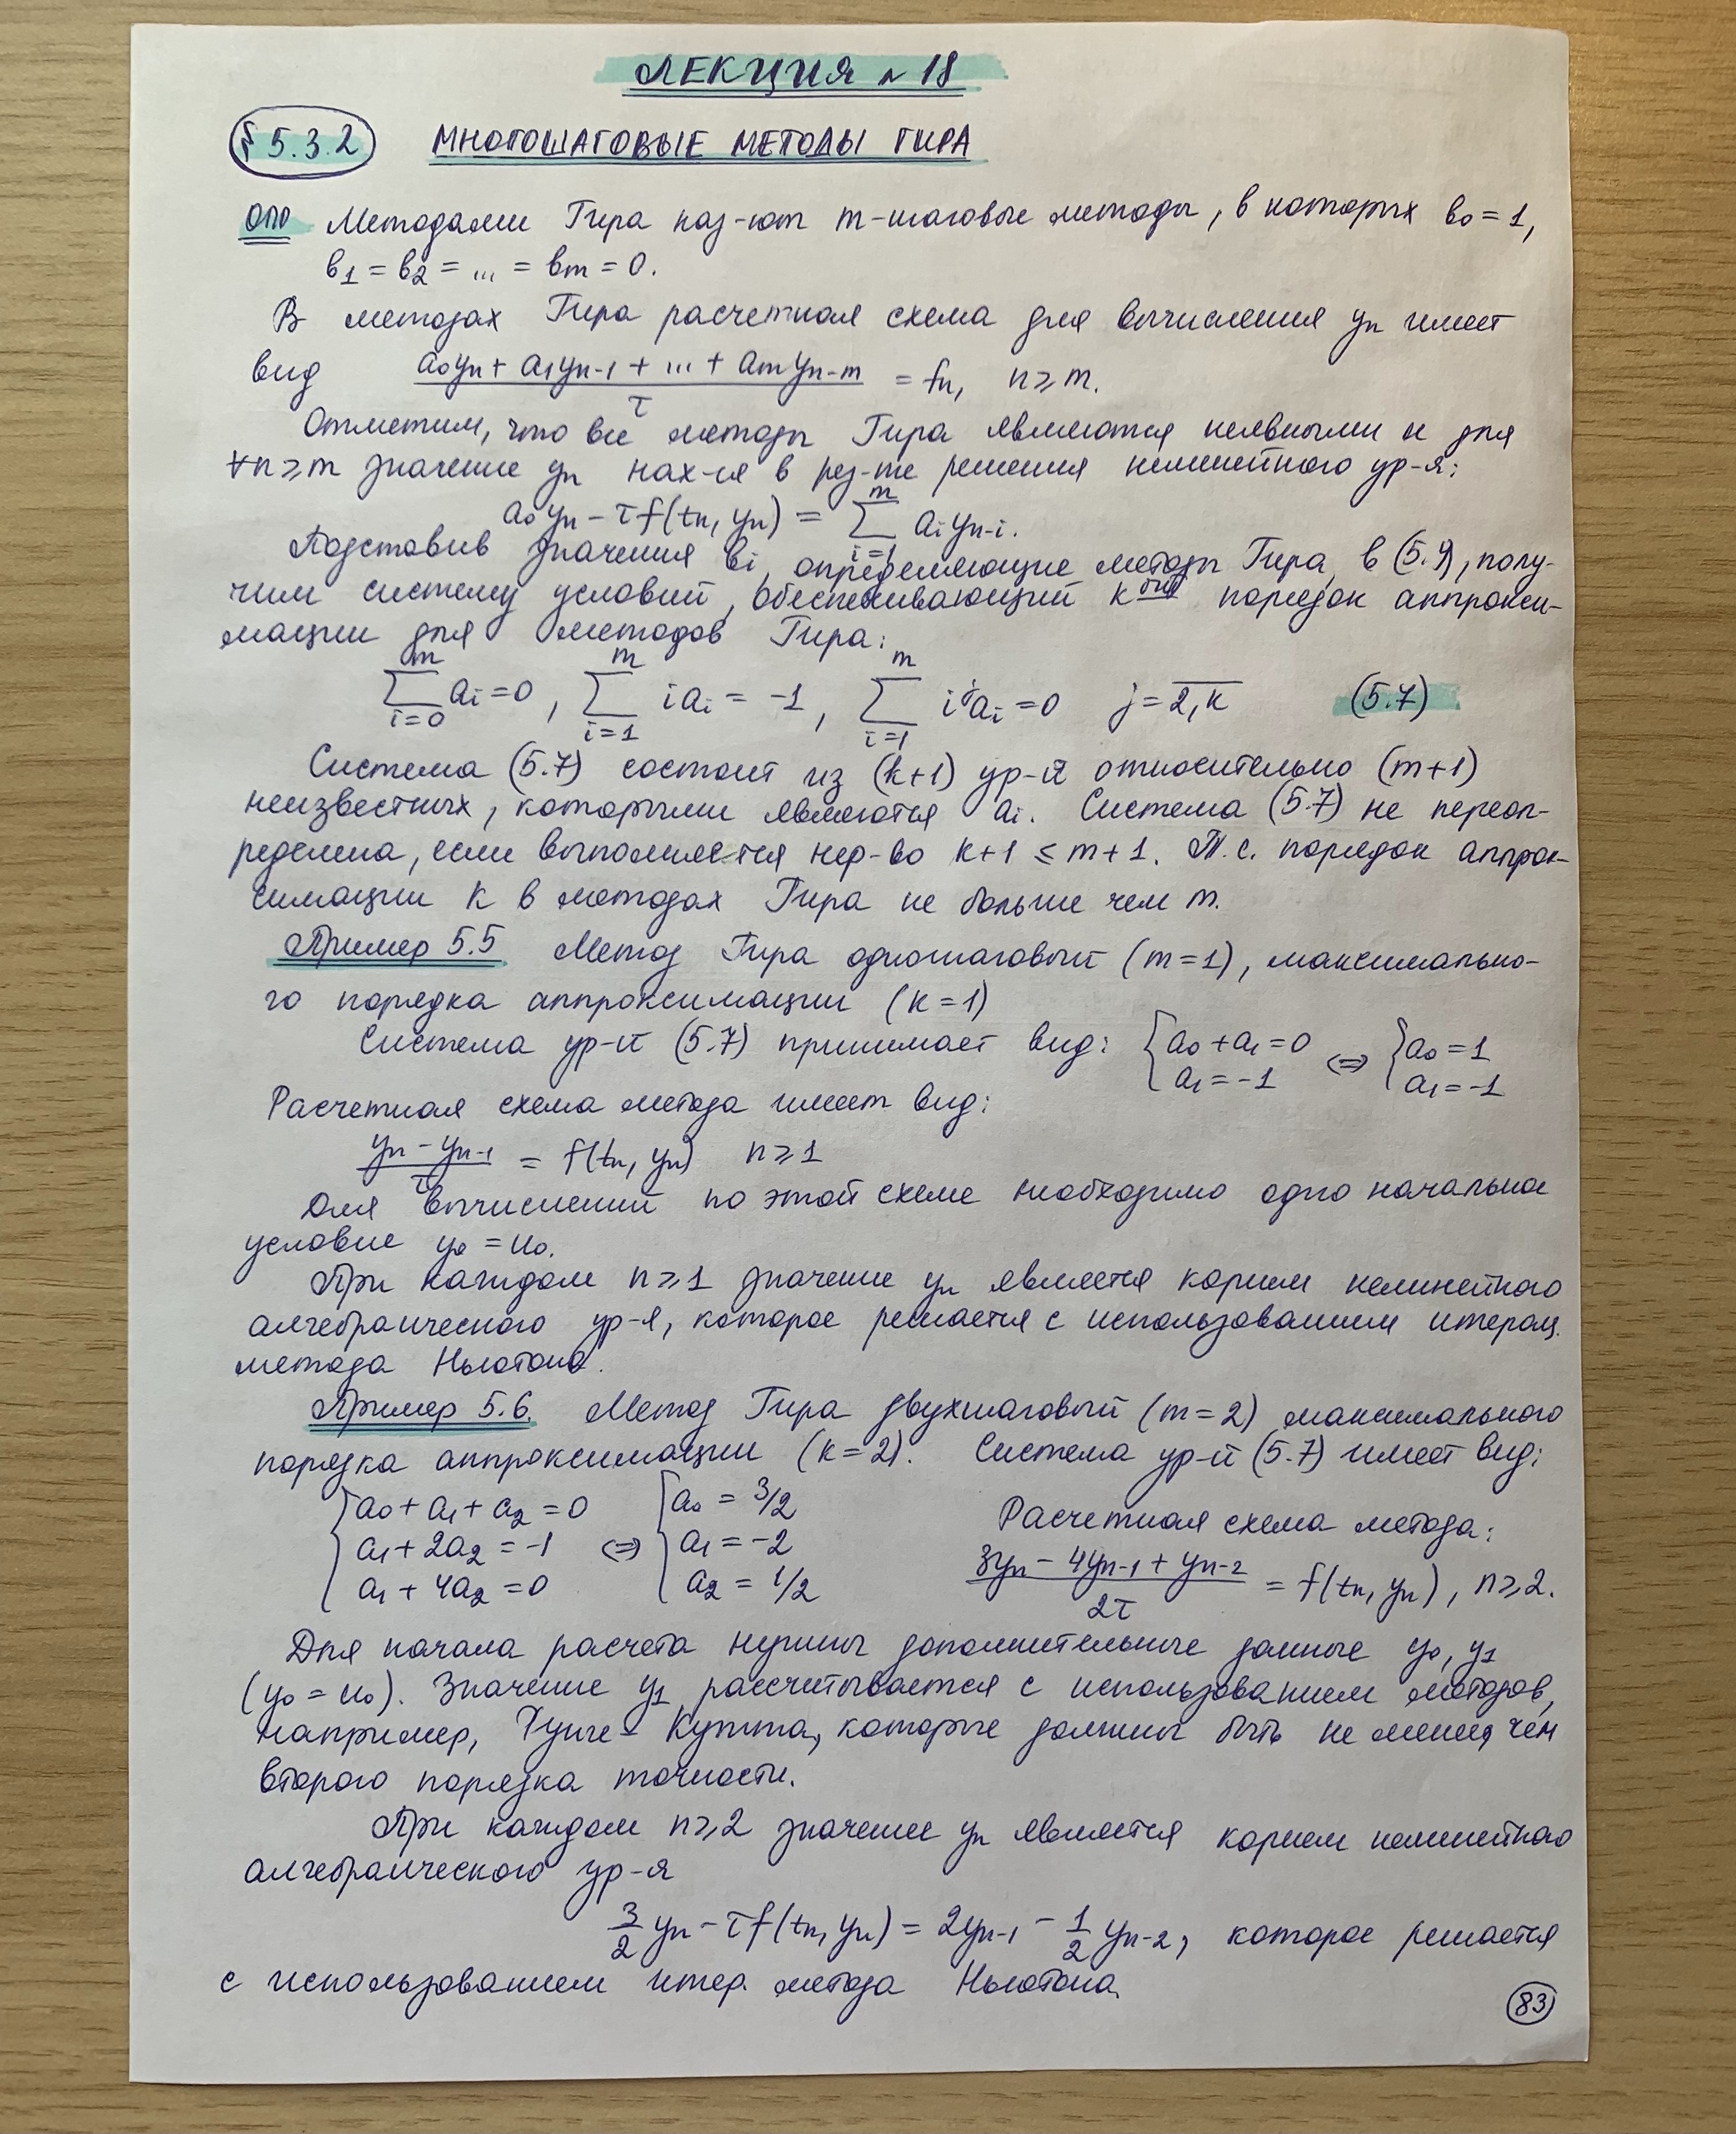 ЛЕКЦИЯ № 18
§ 5.3.2 МНОГОШАГОВЫЕ МЕТОДЫ ГИРА
ОПР Методами Гира наз-ют m-шаговые методы, в которых b₀ = 1,
b₁ = b₂ = ... = bm = 0.
В методах Гира расчетная схема для вычисления yₙ имеет
вид (a₀yₙ + a₁yₙ₋₁ + ... + amyₙ₋m)/τ = fₙ, n ≥ m.
Отметим, что все методы Гира являются неявными и для
∀n ≥ m значение yₙ нах-ся в рез-те решения нелинейного ур-я:
a₀yₙ − τf(tₙ, yₙ) = ∑_{i=1}^{m} aᵢyₙ₋ᵢ.
Подставив значения bᵢ, определяющие методы Гира, в (5.9), полу-
чим систему условий, обеспечивающий kый порядок аппрокси-
мации для методов Гира:
∑_{i=0}^{m} aᵢ = 0, ∑_{i=1}^{m} iaᵢ = -1, ∑_{i=1}^{m} iʲaᵢ = 0 j = \overline{2,k} (5.7)
Система (5.7) состоит из (k+1) ур-й относительно (m+1)
неизвестных, которыми являются aᵢ. Система (5.7) не переоп-
ределена, если выполняется нер-во k+1 ≤ m+1. Т.е. порядок аппрок-
симации k в методах Гира не больше чем m.
Пример 5.5 Метод Гира одношаговый (m=1), максимально-
го порядка аппроксимации (k=1)
Система ур-й (5.7) принимает вид: { a₀ + a₁ = 0 a₁ = -1 ⇔ { a₀ = 1 a₁ = -1
Расчетная схема метода имеет вид:
(yₙ − yₙ₋₁)/τ = f(tₙ, yₙ) n ≥ 1
Для вычислений по этой схеме необходимо одно начальное
условие y₀ = u₀.
При каждом n ≥ 1 значение yₙ является корнем нелинейного
алгебраического ур-я, которое решается с использованием итерац.
метода Ньютона.
Пример 5.6. Метод Гира двухшаговый (m=2) максимального
порядка аппроксимации (k=2). Система ур-й (5.7) имеет вид:
{ a₀ + a₁ + a₂ = 0 a₁ + 2a₂ = -1 a₁ + 4a₂ = 0 ⇔ { a₀ = 3/2 a₁ = -2 a₂ = 1/2
Расчетная схема метода:
(3yₙ − 4yₙ₋₁ + yₙ₋₂)/2τ = f(tₙ, yₙ), n ≥ 2.
Для начала расчета нужны дополнительные данные y₀, y₁
(y₀ = u₀). Значение y₁ рассчитывается с использованием методов,
например, Рунге-Кутта, которые должны быть не менее, чем
второго порядка точности.
При каждом n ≥ 2 значение yₙ является корнем нелинейного
алгебраического ур-я
3/2 yₙ − τf(tₙ, yₙ) = 2yₙ₋₁ − 1/2 yₙ₋₂, которое решается
с использованием итер. метода Ньютона.
83